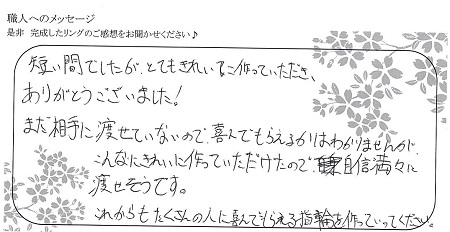 職人へのメッセージ
是非 完成したリングのご感想をお聞かせください♪
短い間でしたが、とてもきれいに作っていただき、
ありがとうございました!
まだ相手に渡せていないので、喜んでもらえるかはわかりませんが、
こんなにきれいに作っていただけたので、自信満々に
渡せそうです。
これからもたくさんの人に喜んでもらえる指輪を作っていってください。